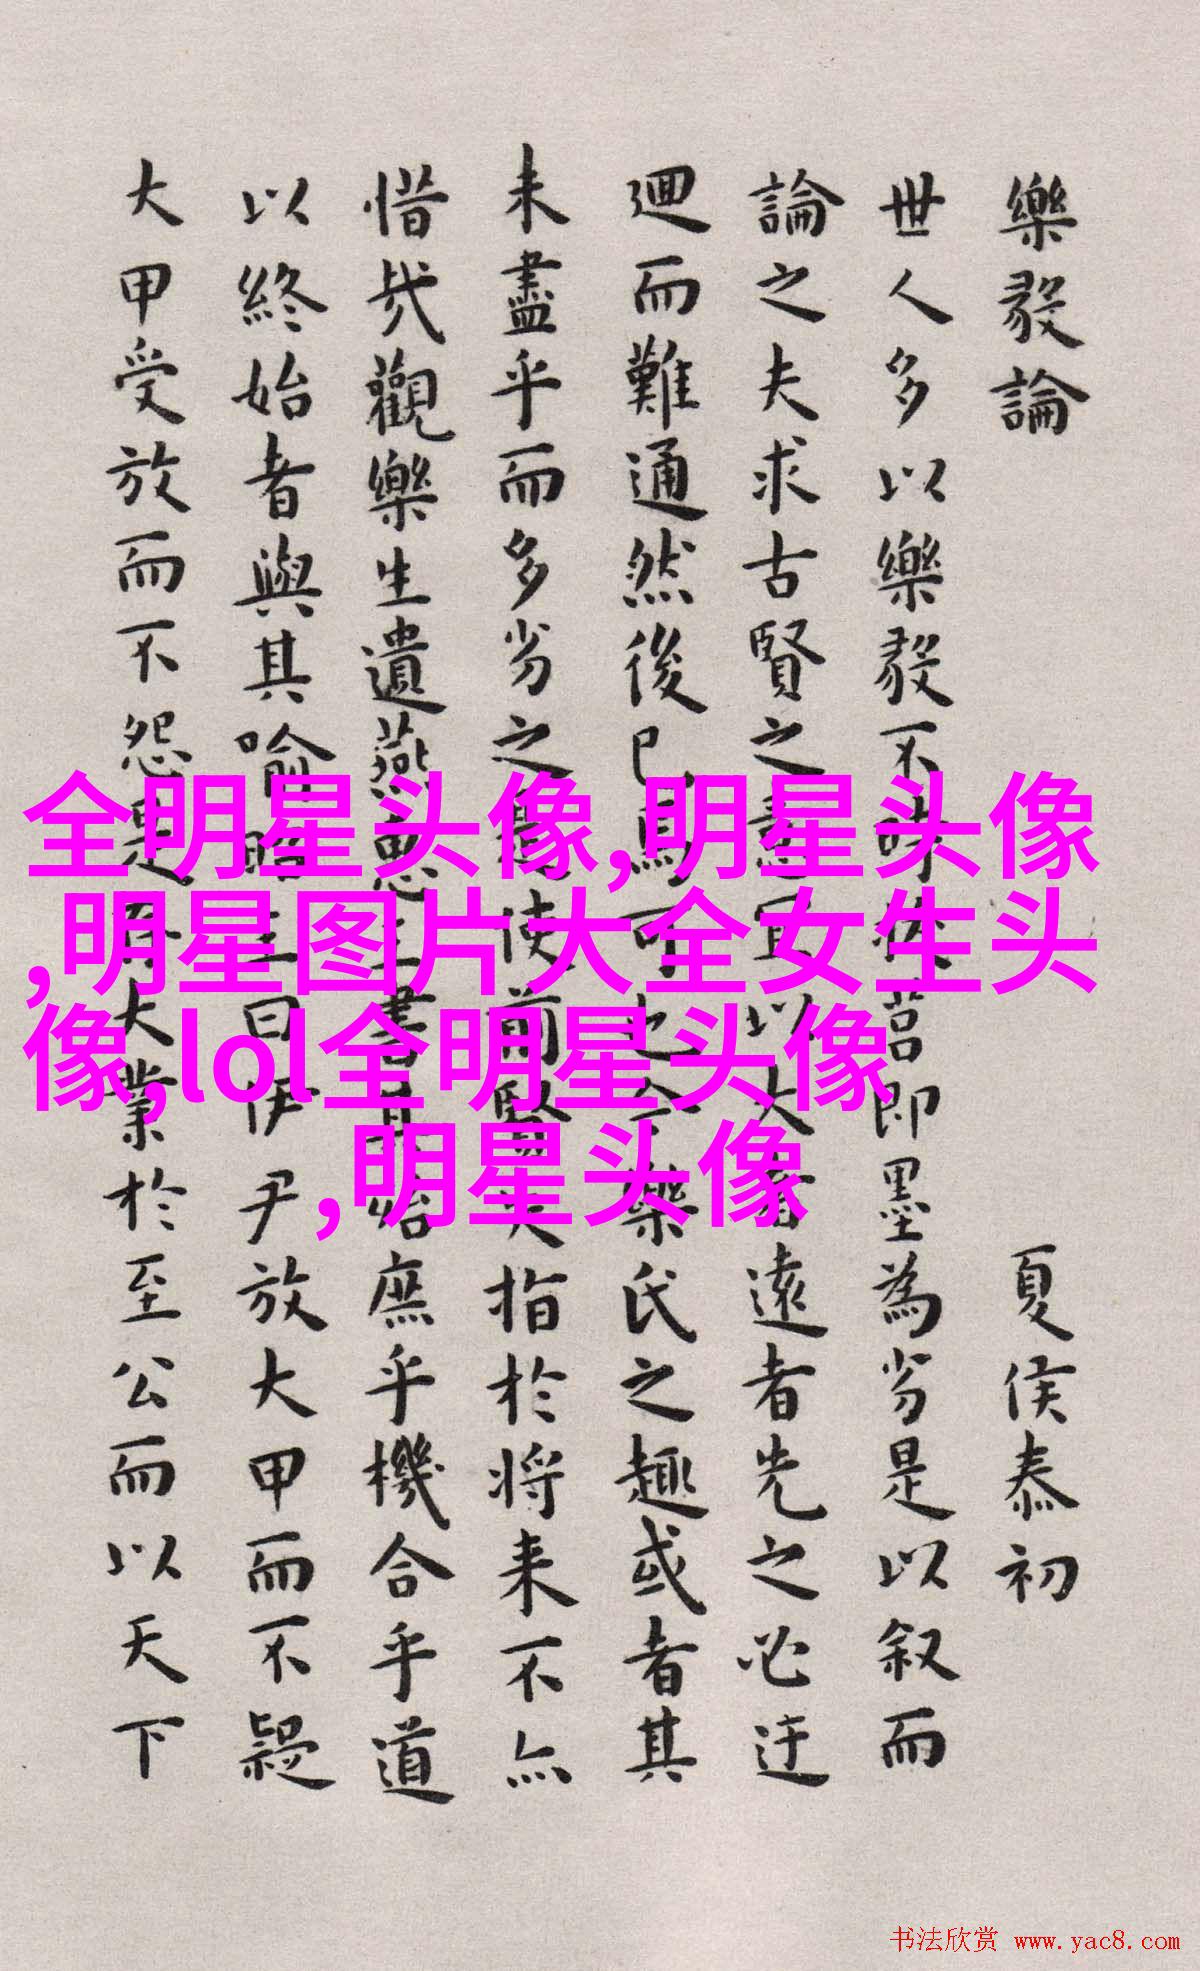 樂毅論 夏侯泰初
世人多以樂毅不時拔莒即墨為劣是以叙而
論之夫求古賢之意宜以大者遠者先之必迂
迴而難通然後已焉可也今樂氏之趣或者其
未盡乎而多劣之是使前賢失指於将来不亦
惜哉觀樂生遺燕惠王書其殆庶乎機合乎道
以終始者與其喻昭王曰伊尹放大甲而不疑
大甲受放而不怨是存大業於至公而以天下
全明星头像,明星头像
,明星图片大全女生头
像,lol全明星头像
,明星头像
书法欣赏 www.yac8.com